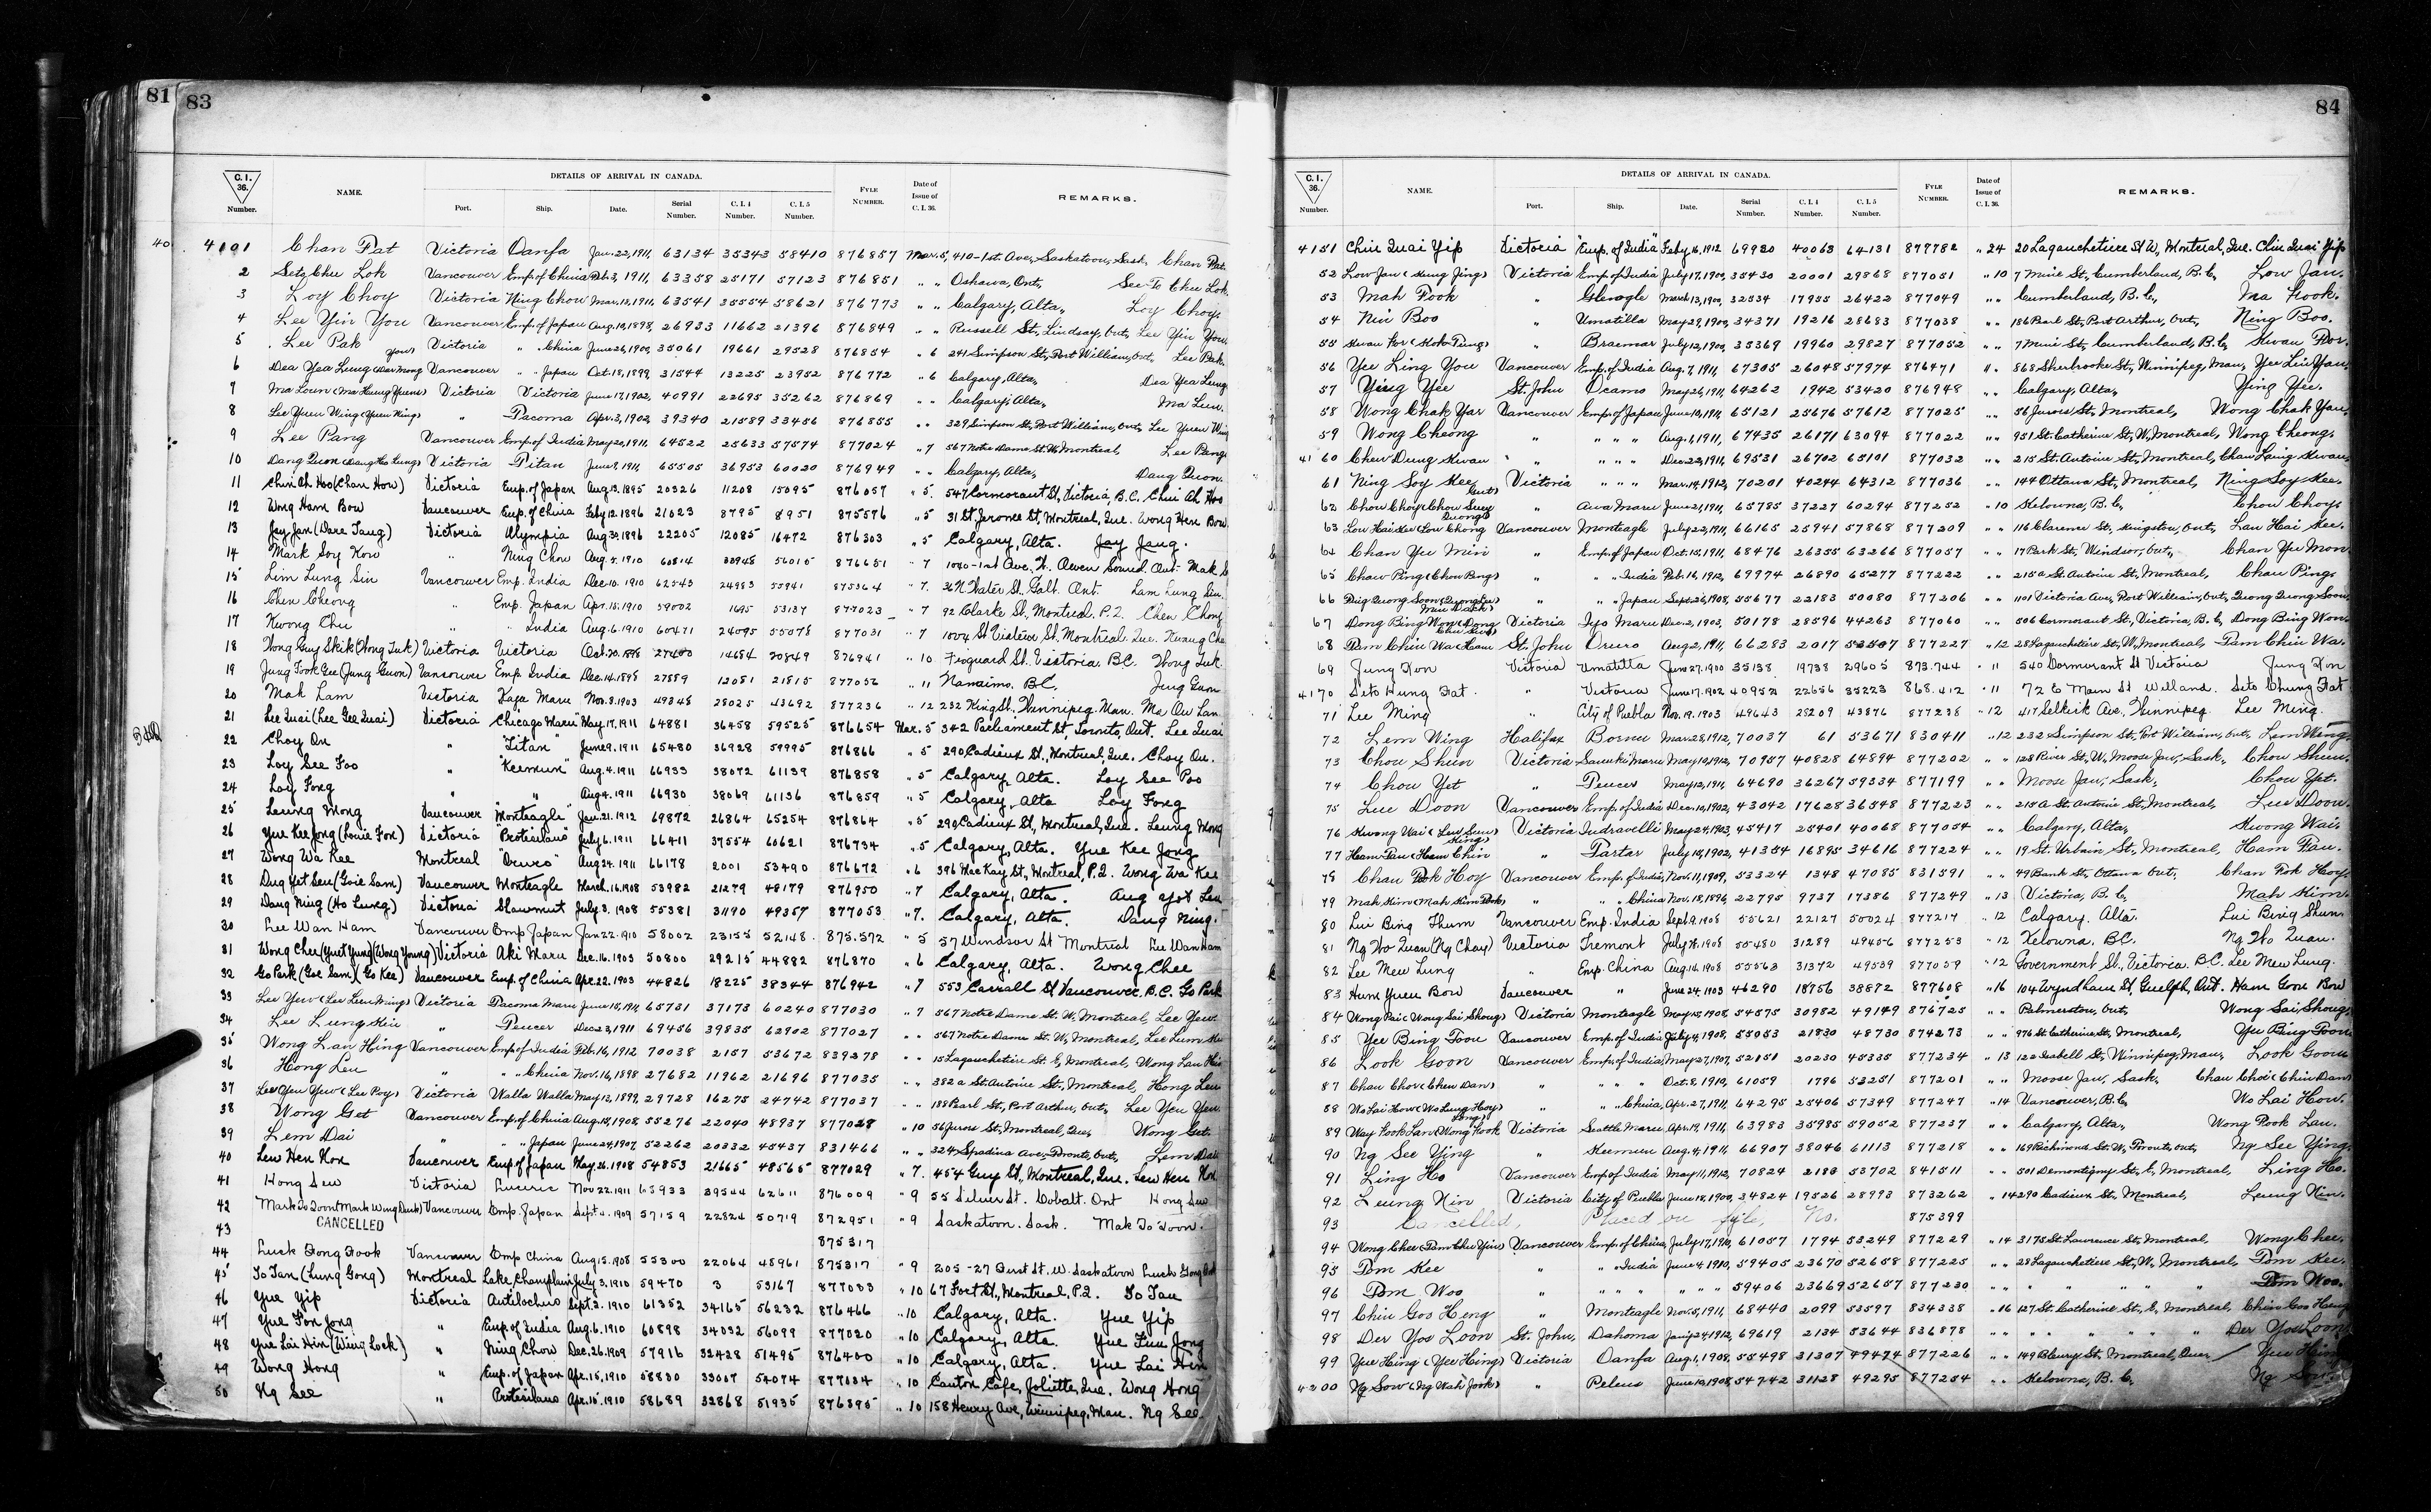 81
83
C. I. 36. Number. NAME. DETAILS OF ARRIVAL IN CANADA. Port. Ship. Date. Serial Number. C. I. 4 Number. C. I. 5 Number. FYLE NUMBER. Date of Issue of C. I. 36. REMARKS.
40
4101 Chan Fat Victoria Oanfa Jan. 22, 1911, 63134 35343 58410 876857 Mar. 5, 410-1st Ave, Saskatoon, Sask. Chan Fat.
2 Seto Chu Lok Vancouver Emp. of China Feb. 3, 1911, 63358 25171 57123 876851 " " Oshawa, Ont, See To Chu Lok.
3 Loy Choy Victoria Ning Chow Mar. 13, 1911, 63541 35554 58621 876773 " " Calgary, Alta, Loy Choy.
4 Lee Yin You Vancouver Emp. of Japan Aug. 10, 1898, 26933 11662 21396 876849 " " Russell St, Lindsay, Ont, Lee Yin You.
5 Lee Pak Victoria " " China June 26, 1900, 35061 19661 29528 876854 " 6 241 Simpson St, Fort William, Ont, Lee Pak.
6 Dea Yea Lung (Dar Mong You) Vancouver " " Japan Oct. 18, 1899, 31544 13225 23952 876772 " 6 Calgary, Alta, Dea Yea Lung
7 Ma Loun (Ma Hung Yuen) Victoria Victoria June 17, 1902, 40991 22695 35262 876869 " " Calgary, Alta, Ma Lun.
8 Lee Yuen Wing (Yuen King) " Tacoma Apr. 3, 1902, 39340 21589 33456 876855 " " 329 Simpson St, Fort William, Ont, Lee Yuen Wing
9 Lee Pang Vancouver Emp. of India May 20, 1911, 64522 25633 57574 877024 " 7 567 Notre Dame St. W, Montreal, Lee Pang.
10 Dang Quon (Dang Ho Lung) Victoria Titan June 9, 1911, 65505 36953 60020 876949 " " Calgary, Alta, Dang Quon.
11 Chin Ah Hoo (Chan How) Victoria Emp. of Japan Aug. 13. 1895 20326 11208 15095 876057 " 5. 547 Cormorant St, Victoria, B.C. Chin Ah Hoo
12 Wong Ham Bow Vancouver Emp. of China Feby 12. 1896 21023 8795 8951 875576 " 5 31 St Jerome St, Montreal, Que. Wong Hen Bow.
13 Jay Jan (Dare Tang) Victoria Olympia Aug. 30. 1896 22205 12085 16472 876303 " 5 Calgary, Alta. Jay Jang.
14 Mark Soy Kow " Ning Chow Aug. 5. 1910 60814 33948 56015 876651 " 7 1040-1st Ave. W. Owen Sound Ont.
15 Lim Lung Sin Vancouver Emp. India Dec. 10. 1910 62543 24983 55941 875364 " 7. 36 N Water St. Galt. Ont. Lam Lung Sin.
16 Chen Cheong " Emp. Japan Apr. 15. 1910 59002 1695 53137 877023 " 7 92 Clarke St, Montreal, P.Q. Chen Chong
17 Kwong Chu " " India Aug. 6. 1910 60471 24095 55078 877031 " 7 1004 St Viateur St. Montreal Que. Kwang Chu
18 Wong Guy Skik (Wong Tuk) Victoria Victoria Oct. 20. 1898 27400 14654 20849 876941 " 10 Fisguard St. Victoria. BC. Wong Tuk.
19 Jung Fook Gee (Jung Guon) Vancouver Emp India Dec. 14. 1898 27889 12081 21815 877056 " 11 Nanaimo. B.C. Jung Guon
20 Mah Lam Victoria Kaga Maru Nov. 8. 1903 49348 28025 43692 877236 " 12 232 King St. Winnipeg. Man. Ma Ow Lan
21 Lee Quai (Lee Gee Quai) Victoria "Chicago Maru" May. 17. 1911 64881 36458 59525 876654 Mar. 5 342 Parliament St, Toronto, Ont. Lee Quai
22 Choy On " "Titan" June 9. 1911 65480 36928 59995 876866 " 5 290 Cadieux St., Montreal, Que. Choy On.
23 Loy See Foo " "Keemun" Aug. 4. 1911 66933 38072 61139 876858 " 5 Calgary, Alta. Loy See Poo
24 Loy Fong " " Aug 4. 1911 66930 38069 61136 876859 " 5 Calgary, Alta Loy Fong
25 Leung Mong Vancouver "Monteagle" Jan. 21. 1912 69872 26864 65254 876864 " 5 290 Cadieux St, Montreal, Que. Leung Mong
26 Yue Kee Jong (Louie Fon) Victoria "Protesilaus" July 6. 1911 66411 37554 60621 876734 " 5 Calgary, Alta. Yue Kee Jong
27 Wong Wa Kee Montreal "Druro" Aug 24. 1911 66178 2001 53490 876672 " 6 396 MacKay St, Montreal, P.Q. Wong Wa Kee
28 Dug Yet Seu (Goie Sam) Vancouver Monteagle March. 16. 1908 53982 21279 48179 876950 " 7 Calgary, Alta.
29 Dang Ning (Ho Lung) Victoria Shawmut July 3. 1908 55381 31190 49357 877053 " 7. Calgary, Alta. Dang Ning.
30 Lee Wan Ham Vancouver Emp Japan Jan 22. 1910 58002 23155 52148. 875.572 " 5 57 Windsor St Montreal Lee Wan Ham
31 Wong Chee (Yuet Yung) (Wong Young) Victoria Aki Maru Dec. 16. 1903 50800 29215 44882 876870 " 6 Calgary, Alta. Wong Chee
32 Go Park (Goe Sam) (Go Kee) Vancouver Emp. of China Apr. 22. 1903 44826 18225 38344 876942 " 7 553 Carrall St Vancouver. B.C. Go Park
33 Lee Yuw (Lee Leen Ming) Victoria Tacoma Maru June 15, 1911, 65731 37173 60240 877030 " 7 567 Notre Dame St. W, Montreal, Lee Yuw.
34 Lee Lung Kin " Teucer Dec 23, 1911 69456 39835 62902 877027 " " 567 Notre Dame St. W, Montreal,
35 Wong Lan Hing Vancouver Emp. of India Feb. 16, 1912 70038 2157 53672 839278 " " 15 Lagauchetiere St. E, Montreal, Wong Lan Hin
36 Hong Leu " " " China Nov. 16, 1898 27682 11962 21696 877035 " " 382a St. Antoine St, Montreal, Hong Leu
37 Lee You Yuw (Lee Poy) Victoria Walla Walla May 12, 1899, 29728 16275 24742 877037 " " 188 Pearl St, Port Arthur, Ont, Lee Yeu Yeu.
38 Wong Get Vancouver Emp. of China Aug. 18, 1908, 55276 22040 48937 877028 " 10 56 Jurors St, Montreal, Que, Wong Get.
39 Lem Dai " " " Japan June 24, 1907 53262 20332 45437 831466 " " 324 Spadina Ave, Toronto, Ont, Lem Dai
40 Lew Hen Kon Vancouver Emp. of Japan May. 26. 1908 54853 21665 48565 877029 " 7. 454 Guy St, Montreal, Que. Lew Hen Kon
41 Hong Sew Victoria Luceric Nov 22. 1911 68933 39544 62611 876009 " 9 55 Silver St. Cobalt. Ont Hong Sew
42 Mark To Toon (Mark Wing Duck) Vancouver Emp. Japan Sept. 4. 1909 57159 22824 50719 872951 " 9 Saskatoon. Sask. Mak To Toon.
43 CANCELLED 875317
44 Luck Fong Fook Vancouver Emp China Aug 15. 1908 55300 22064 48961 875317 " 9 205-27 Ourst St. W. Saskatoon
45 To Tan (Lung Gong) Montreal Lake Champlain July 3. 1910 59470 3 53167 877033 " 10 67 Fort St, Montreal, P.Q. To Tan
46 Yue Yip Victoria Antilochus Sept. 2. 1910 61352 34165 56232 876466 " 10 Calgary, Alta. Yue Yip
47 Yue Fon Jong " Emp of India Aug. 6. 1910 60898 34032 56099 877020 " 10 Calgary, Alta. Yue Fun Jong
48 Yue Lai Hin (Wing Lock) " Ning Chow Dec. 26. 1909 57916 32428 51495 876400 " 10 Calgary, Alta. Yue Lai Hin
49 Wong Hong " Emp. of Japan Apr. 15. 1910 58830 33007 54074 877034 " 10 Canton Cafe, Joliette, Que. Wong Hong
50 Ng See " Protesilaus Apr. 15. 1910 58689 32868 51935 876395 " 10 158 Henry Ave, Winnipeg, Man. Ng See.
84
C. I. 36. Number. NAME. DETAILS OF ARRIVAL IN CANADA. Port. Ship. Date. Serial Number. C. I. 4 Number. C. I. 5 Number. FYLE NUMBER. Date of Issue of C. I. 36. REMARKS.
4151 Chin Quai Yip Victoria "Emp. of India" Feby. 16. 1912 69980 40063 64131 877782 " 24 20 Lagauchetiere St W, Montreal, Que. Chin Quai Yip
52 Low Jan (Hung Jing) Victoria Emp. of India July 17, 1900, 35430 20001 29868 877051 " 10 7 Mine St, Cumberland, B.C, Low Jan.
53 Mah Fook " Glenogle March 13, 1900, 32534 17955 26422 877049 " " Cumberland, B.C, Ma Fook.
54 Nin Boo " Umatilla May 29, 1900, 34371 19216 28683 877038 " " 186 Pearl St, Port Arthur, Ont, Ning Boo.
55 Kwan For (Kok Tung) " Braemar July 12, 1900, 35369 19960 29827 877052 " " 7 Mine St, Cumberland, B.C, Kwan For.
56 Yee Ling You Vancouver Emp. of India Aug. 7, 1911, 67305 26048 57974 876471 " 868 Sherbrooke St, Winnipeg, Man, Yee Lin You,
57 Ying Yee St. John Ocamo May 26, 1911, 64262 1942 53420 876948 " Calgary, Alta, Ying Yee.
58 Wong Chak Yar Vancouver Emp. of Japan June 10, 1911, 65121 25676 57612 877025 " " 56 Jurors St, Montreal, Wong Chak Yau,
59 Wong Cheong " " " " Aug. 1, 1911, 67435 26171 63094 877022 " " 951 St. Catherine St, W, Montreal, Wong Cheong.
4160 Chew Dung Kwan " " " " Dec. 22, 1911, 69531 26702 65101 877032 " " 215 St. Antoine St, Montreal,
61 Ning Soy Kee Victoria " " " Mar. 14, 1912, 70201 40244 64312 877036 " " 144 Ottawa St, Montreal, Ning Soy Kee.
62 Chow Choy (Chow Suey Quong) " Awa Maru June 21, 1911, 65785 37227 60294 877252 " 10 Kelowna, B.C, Chow Choy.
63 Low Hai Kee (Low Chong) Vancouver Monteagle July 22, 1911, 66165 25941 57868 877209 " " 116 Clarence St, Kingston, Ont, Lau Hai Kee.
64 Chan Yee Min " Emp. of Japan Oct. 15, 1911, 68476 26355 63266 877057 " " 17 Park St, Windsor, Ont, Chan Yee Mon
65 Chaw Ping (Chow Pong) " " " India Feb. 16, 1912, 69774 26890 65277 877222 " " 215a St. Antoine St, Montreal, Chau Ping.
66 Quong Soon Mui Dack) " " " Japan Sept. 26, 1908, 55677 22183 50080 877206 " " 1101 Victoria Ave, Fort William, Ont, Quong Quong Soon.
67 Dong Bing Won (Dong Chu Guk) Victoria Iyo Maru Dec. 2, 1903, 50178 28596 44263 877060 " " 506 Cormorant St, Victoria, B.C, Dong Bing Won.
68 Tam Chin Wa (Ham St. John Oruro Aug. 2, 1911, 66283 2017 53507 877227 " 12 28 Lagauchetiere St, W, Montreal, Tam Chin Wa.
69 Jung Kon Victoria Umatilla June 27. 1900 35138 19738 29605 873.744 " 11 540 Cormorant St Victoria Jung Kon
4170 Seto Hung Fat. " Victoria June 17. 1902 40952 22656 35223 868.412 " 11 72 E Main St Welland. Seto Chung Fat
71 Lee Ming City of Puebla Nov. 19. 1903 49643 28209 43876 877238 " 12 417 Selkirk Ave. Winnipeg. Lee Ming.
72 Lem Wing Halifax Bornu Mar. 28, 1912, 70037 61 53671 830411 " 12 232 Simpson St, Fort William, Ont, Lem Wing.
73 Chou Shun Victoria Sanuki Maru May 10, 1912, 70957 40828 64894 877202 " " 128 River St, W, Moose Jaw, Sask, Chou Shun.
74 Chou Yet " Teucer May 12, 1911, 64690 36267 59334 877199 " " Moose Jaw, Sask, Chou Yet.
75 Lue Doon Vancouver Emp. of India Dec. 10, 1902, 43042 17628 36548 877223 " " 215 A St. Antoine St, Montreal, Lue Doon.
76 Kwong Wai (Lew Sun Hing) Victoria Indravelli May 24, 1903, 45417 25401 40068 877054 " " Calgary, Alta, Kwong Wai.
77 Ham Fau (Ham Chin " Tartar July 15, 1902, 41354 16895 34616 877224 " " 19 St. Urbain St, Montreal, Ham Fau.
78 Chau Fook Hoy Vancouver Emp. of India, Nov. 11, 1909, 53324 1348 47085 831591 " " 49 Bank St, Ottawa Ont, Chan Fok Hoy
79 Mah Kim (Mah Kim Pok) " " " China Nov. 18, 1896, 22795 9737 17386 877249 " 13 Victoria, B.C, Mah Kim.
80 Lui Bing Thum Vancouver Emp. India Sept. 9. 1908 55621 22127 50024 877217 " 12 Calgary. Alta. Lui Bing Shun.
81 Ng Wo Quan (Ng Chay) Victoria Tremont July 18. 1908 55480 31289 49456 877253 " 12 Kelowna. BC. Ng Wo Quan.
82 Lee Mew Lung " Emp. China Aug. 14. 1908 55563 31372 49539 877059 " 12 Government St., Victoria. B.C. Lee Mew Lung.
83 Hum Yuen Bow Vancouver " June 24. 1903 46290 18956 38872 877608 " 16 104 Wyndham St, Guelph, Ont. Ham Goon Bow
84 Wong Pai (Wong Sai Shong) Victoria Monteagle May 15, 1908, 54575 30982 49149 876725 " " Palmerston, Ont, Wong Sai Shong.
85 Yee Bing Toou Vancouver Emp. of India July 4, 1908, 55053 21830 48730 874273 " " 976 St Catherine St, Montreal, Yee Bing Toon
86 Look Goon Vancouver Emp. of India, May 27, 1907, 52851 20230 45335 877234 " 13 120 Isabell St, Winnipeg, Man, Look Goon
87 Chau Choi (Chew Dan) " " " " Oct. 8, 1910, 61059 1796 53251 877201 " " Moose Jaw, Sask, Chau Choi (Chin Dan)
88 Wo Lai How (Wo Lung Hoy) " " " China, Apr. 27, 1911, 64295 25406 57349 877247 " 14 Vancouver, B.C, Wo Lai How.
89 Way Fook Lan (Wong Fook Long) Victoria Seattle Maru Apr. 19, 1911, 63983 35985 59052 877237 " " Calgary, Alta, Wong Fook Lau.
90 Ng See Ying " Keemun Aug. 4, 1911, 66907 38046 61113 877218 " " 169 Richmond St. W, Toronto, Ont, Ng See Ying.
91 Ling Ho Vancouver Emp. of India May 11, 1912, 70824 2188 53702 841511 " " 501 Demontigny St, E, Montreal, Ling Ho.
92 Leung Kin Victoria City of Puebla June 18, 1900, 34824 19526 28993 873262 " 14 290 Cadieux St, Montreal, Leung Kin.
93 Cancelled, Placed on fyle, No. 875399
94 Wong Chee (Tam Chu Yin) Vancouver Emp. of China, July 17, 1910, 61057 1794 53249 877229 " 14 3175 St. Lawrence St, Montreal, Wong Chee.
95 Tom Kee " " " India June 4, 1910, 59405 23670 52658 877225 " " 28 Lagauchetiere St, W, Montreal, Tom Kee.
96 Tom Woo " " " " " " " 59406 23669 52657 877230 " " " " " " " Tom Woo.
97 Chin Goo Heng " Monteagle Nov. 5, 1911, 68440 2099 53597 834338 " 16 127 St. Catherine St, E, Montreal, Chin Goo Heng
98 Der You Loon St. John, Dahoma Jany 24, 1912, 69619 2134 53644 836878 " " " " " " " Der You Loon
99 Yue Hing (Yee Hing) Victoria Oanfa Aug. 1, 1908, 55498 31307 49474 877226 " " 149 Bleury St, Montreal, Que, Yue Hing
4200 Ng Sow (Ng Wah Jook) " Peleus June 10, 1908, 54742 31128 49295 877254 " " Kelowna, B.C, Ng Sow.